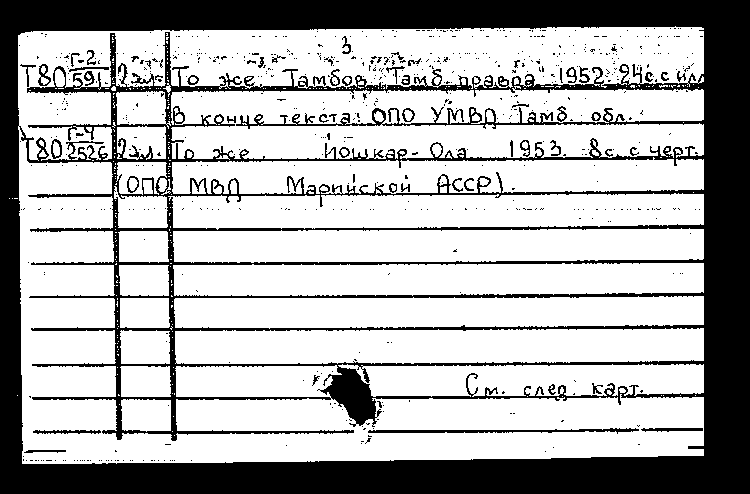 3
Т80 Г-2/591 2 экз. То же Тамбов „Тамб. правда" 1952 24с. с илл
В конце текста: ОПО УМВД Тамб. обл.
Т80 Г-4/2526 2 эл. То же. Йошкар-Ола 1953. 8с. с черт.
(ОПО МВД Марийской АССР).
См. след. карт.